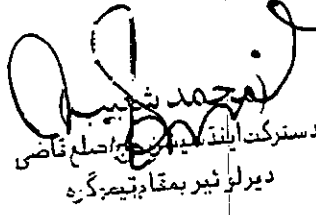 محمد شبیر
دسترکت ایند سیشن جج/ضلع قاضی
دیر لوئیر بمقام تیمرگره